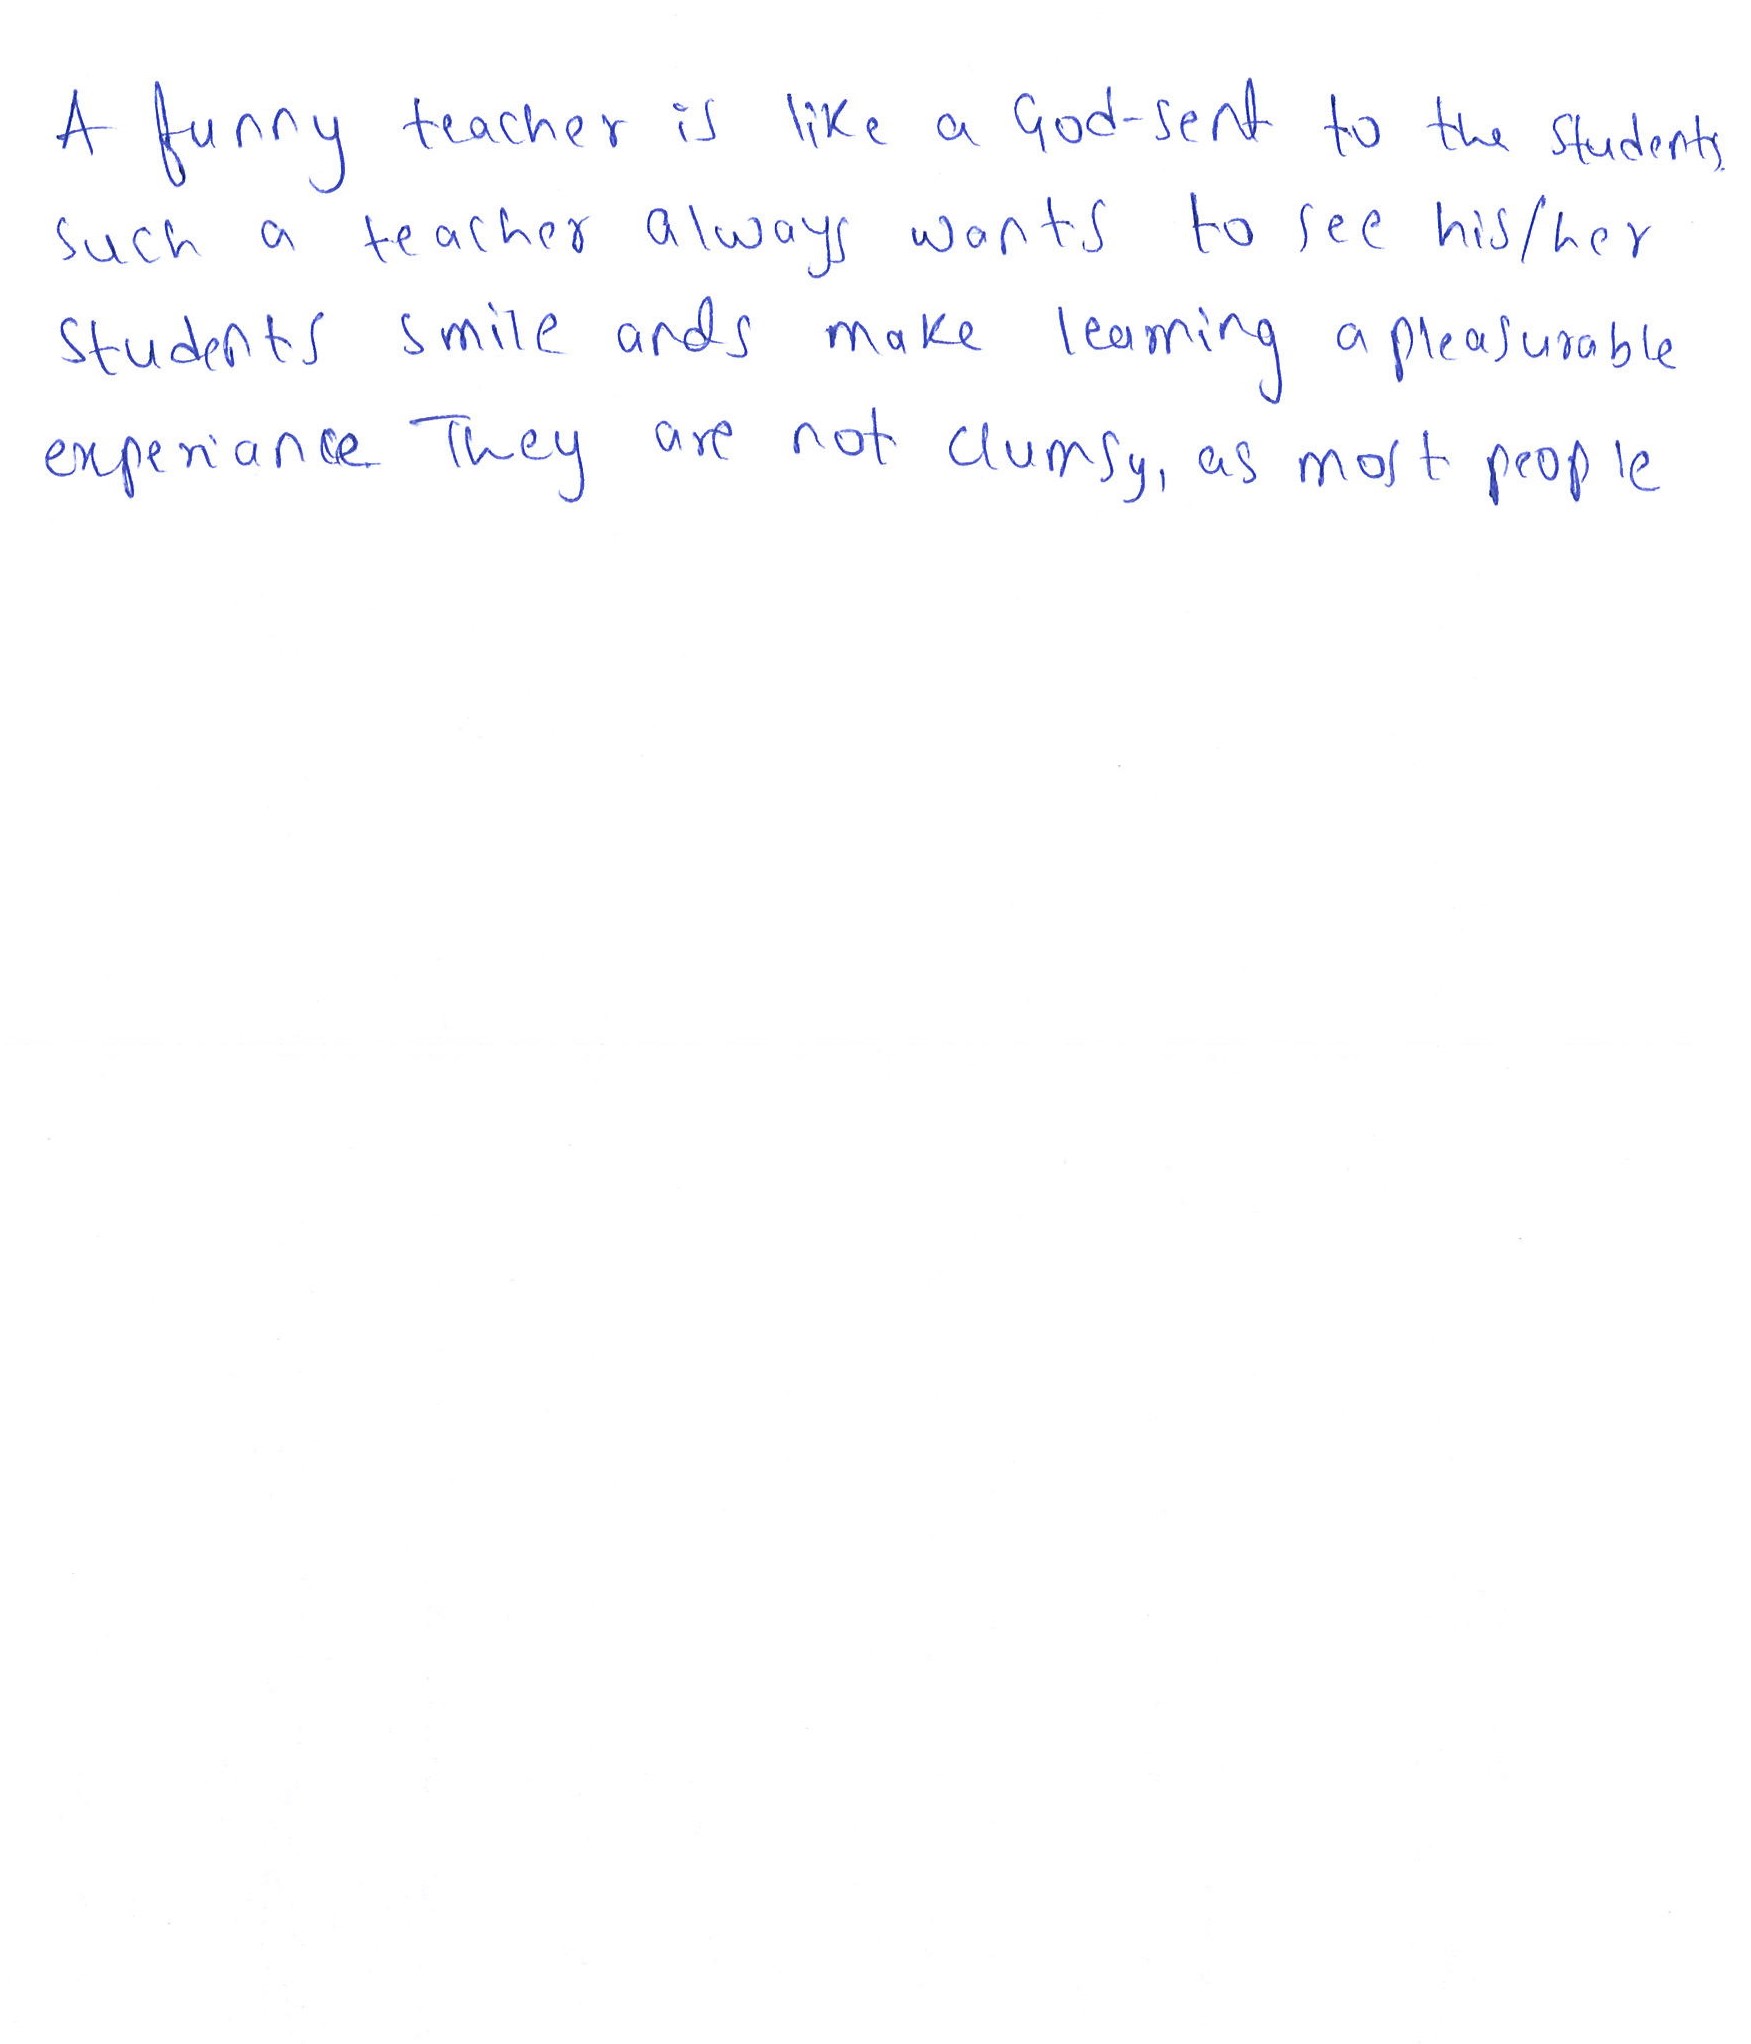 A funny teacher is like a God-sent to the students.
such a teacher always wants to see his/her
students smile ands make learning a pleasurable
experiance. They are not clumsy, as most people